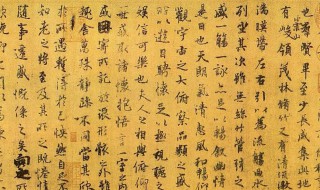 也羣賢畢至少長咸集此地
有峻領茂林脩竹又有清流激
湍暎帶左右引以為流觴曲水
列坐其次雖無絲竹管弦之
盛一觴一詠亦足以暢敘幽情
是日也天朗氣清惠風和暢仰
觀宇宙之大俯察品類之盛
所以遊目騁懷足以極視聽之
娛信可樂也夫人之相與俯仰
一世或取諸懷抱悟言一室之內
或因寄所託放浪形骸之外雖
趣舍萬殊靜躁不同當其欣
於所遇暫得於己怏然自足不
知老之將至及其所之既惓情
隨事遷感慨係之矣向之